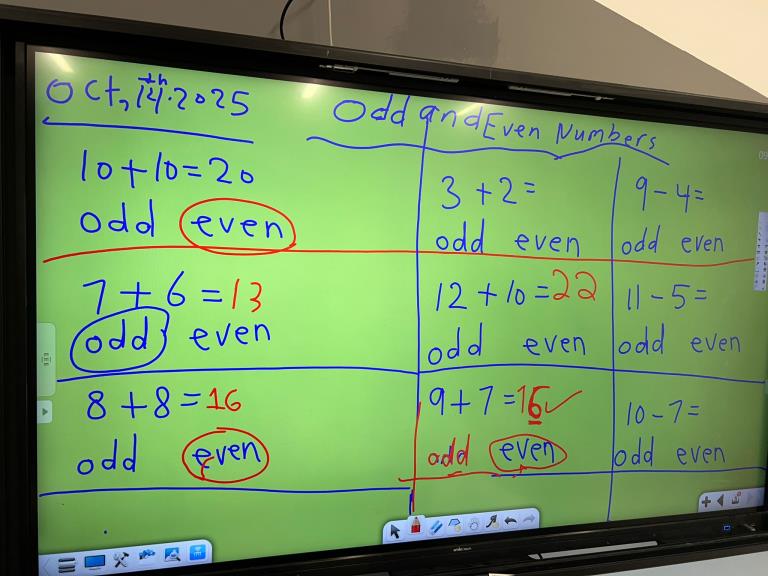 Oct, 14th.2025
Odd and Even Numbers
10+10=20
odd even
7+6=13
odd even
8+8=16
odd even
3+2=
odd even
12+10=22
odd even
9+7=16✓
odd even
9-4=
odd even
11-5=
odd even
10-7=
odd even
09